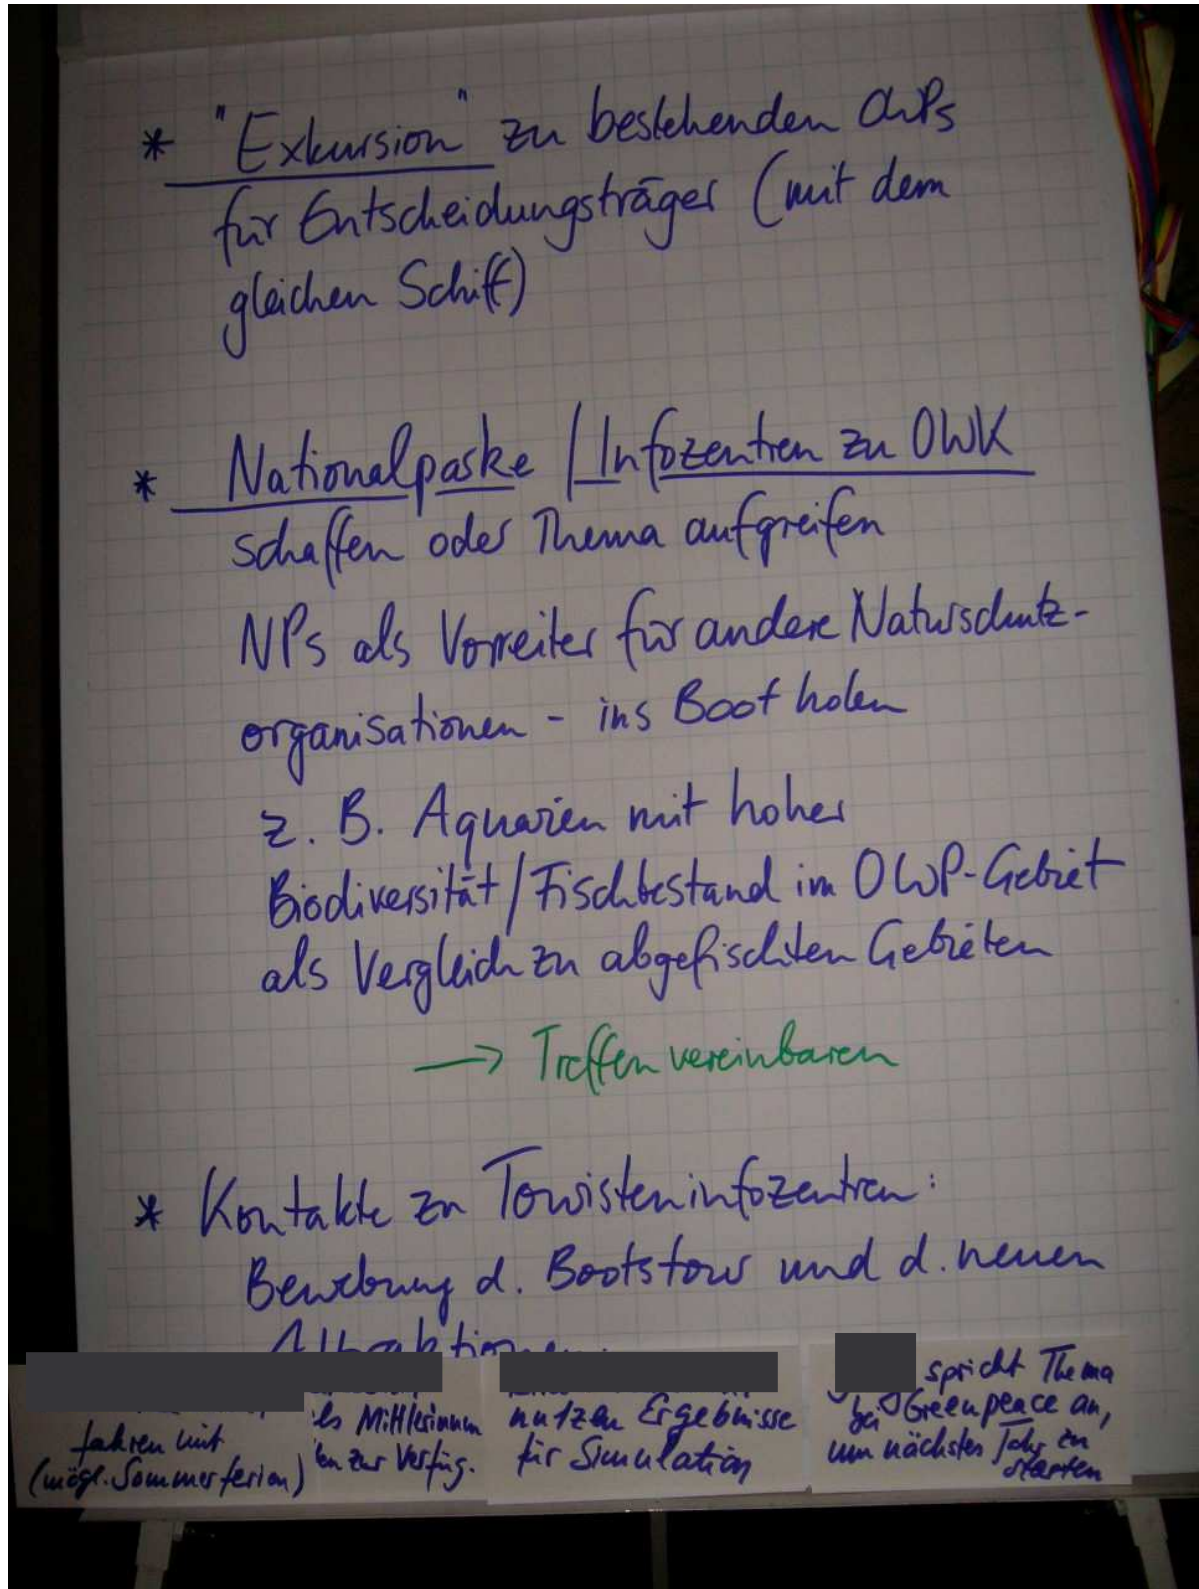 * "Exkursion" zu bestehenden OWPs
für Entscheidungsträger (mit dem
gleichen Schiff)
* Nationalparke / Infozentren zu OWK
schaffen oder Thema aufgreifen
NPs als Vorreiter für andere Naturschutz-
organisationen - ins Boot holen
z. B. Aquarien mit hoher
Biodiversität / Fischbestand im OWP-Gebiet
als Vergleich zu abgefischten Gebieten
→ Treffen vereinbaren
* Kontakte zu Touristeninfozentren:
Bewerbung d. Bootstour und d. neuen
Attraktionen
fahren mit
(mögl. Sommerferien)
als Mittlerinnen
zur Verfüg.
nutzen Ergebnisse
für Simulation
spricht Thema
bei Greenpeace an,
um nächstes Jahr zu
starten